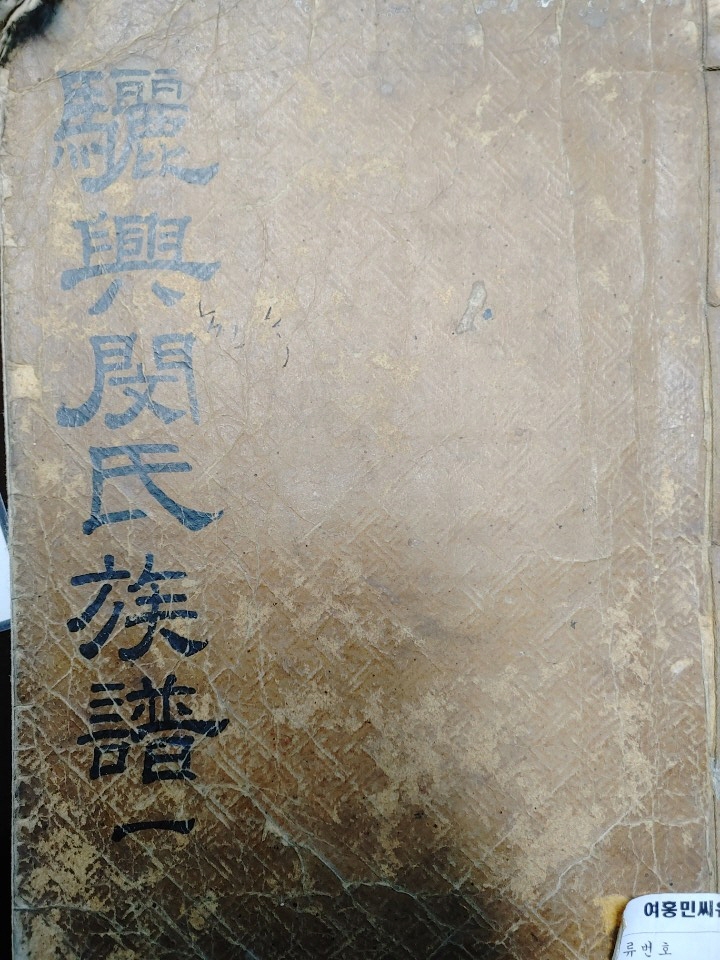 驪興閔氏族譜一
여흥민씨
류번호